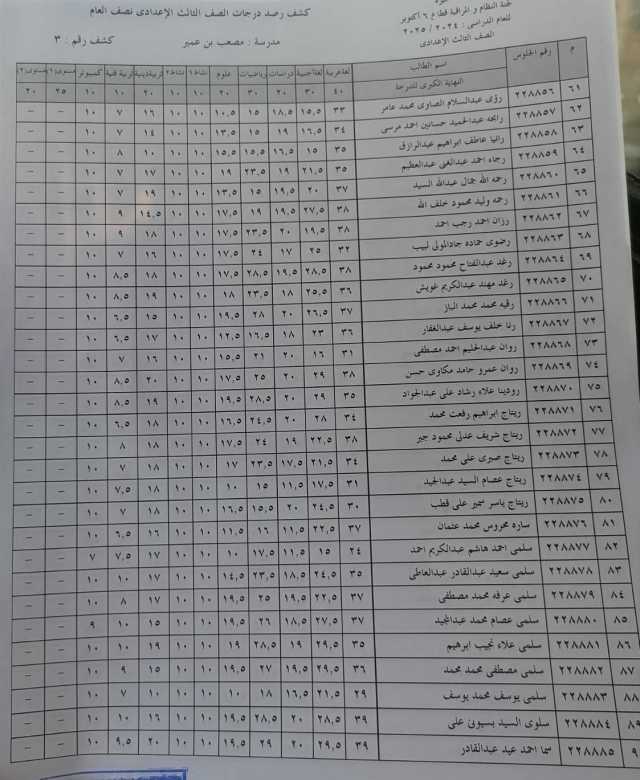 كشف رصد درجات الصف الثالث الإعدادى نصف العام
لجنة النظام و المراقبة قطاع ٦ أكتوبر
للعام الدراسى : ٢٠٢٤ / ٢٠٢٥
الصف الثالث الإعدادى
مدرسة : مصعب بن عمير
كشف رقم : ٣
م رقم الجلوس اسم الطالب لغة عربية لغة أجنبية دراسات رياضيات علوم نشاط ١ نشاط ٢ تربية دينية تربية فنية كمبيوتر مستوى(١) مستوى(٢)
النهاية الكبرى للدرجة ٤٠ ٣٠ ٢٠ ٣٠ ٢٠ ١٠ ١٠ ٢٠ ١٠ ١٠ ٢٥ ٢٠
٦١ ٢٢٨٨٥٦ رؤى عبدالسلام الصاوى محمد عامر ٣٣ ١٥,٥ ١٨,٥ ١٥ ١٠,٥ ١٠ ١٠ ١٦ ٧ ١٠ – –
٦٢ ٢٢٨٨٥٧ رابحه عبدالحميد حسانين احمد مرسى ٣٤ ١٦,٥ ١٩ ١٥ ١٣,٥ ١٠ ١٠ ١٤ ٧ ١٠ – –
٦٣ ٢٢٨٨٥٨ رانيا عاطف ابراهيم عبدالرازق ٣٥ ١٥ ١٦,٥ ١٥,٥ ١٥,٥ ١٠ ١٠ ١٠ ٨ ١٠ – –
٦٤ ٢٢٨٨٥٩ رجاء احمد عبدالغنى عبدالعظيم ٣٥ ٢١,٥ ١٩ ٢٣,٥ ١٩ ١٠ ١٠ ١٧ ٧ ١٠ – –
٦٥ ٢٢٨٨٦٠ رحمه الله جمال عبدالله السيد ٣٧ ٢٠ ١٩,٥ ١٥ ١٣,٥ ١٠ ١٠ ١٩ ٧ ١٠ – –
٦٦ ٢٢٨٨٦١ رحمه وليد محمود خلف الله ٣٨ ٢٧,٥ ١٩,٥ ١٩ ١٧,٥ ١٠ ١٠ ١٤,٥ ٩ ١٠ – –
٦٧ ٢٢٨٨٦٢ رزان احمد رجب احمد ٣٨ ١٩,٥ ٢٠ ٢٣,٥ ١٧,٥ ١٠ ١٠ ١٨ ٩ ١٠ – –
٦٨ ٢٢٨٨٦٣ رضوى حماده جادالمولى لبيب ٣٢ ٢٥ ١٧ ٢٤ ١٧,٥ ١٠ ١٠ ١٦ ٧ ١٠ – –
٦٩ ٢٢٨٨٦٤ رغد عبدالفتاح محمود محمود ٣٨ ٢٨,٥ ١٩,٥ ٢٨,٥ ١٧,٥ ١٠ ١٠ ١٨ ٨,٥ ١٠ – –
٧٠ ٢٢٨٨٦٥ رغد مهند عبدالكريم غويش ٣٦ ٢٥,٥ ١٨ ٢٣,٥ ١٨ ١٠ ١٠ ١٩ ٨,٥ ١٠ – –
٧١ ٢٢٨٨٦٦ رقيه محمد محمد الباز ٣٧ ٢٦,٥ ٢٠ ٢٨ ١٩,٥ ١٠ ١٠ ١٥ ٦,٥ ١٠ – –
٧٢ ٢٢٨٨٦٧ رنا خلف يوسف عبدالغفار ٣٦ ٢٣ ١٨ ١٦,٥ ١٢,٥ ١٠ ١٠ ١٧ ٦,٥ ١٠ – –
٧٣ ٢٢٨٨٦٨ روان عبدالحليم احمد مصطفى ٣١ ١٦ ٢٠ ٢١ ١٥,٥ ١٠ ١٠ ١٦ ٧ ١٠ – –
٧٤ ٢٢٨٨٦٩ روان عمرو حامد مكاوى حسن ٣٨ ٢٩ ٢٠ ٢٥ ١٧,٥ ١٠ ١٠ ٢٠ ٨,٥ ١٠ – –
٧٥ ٢٢٨٨٧٠ رودينا علاء رشاد على عبدالجواد ٣٥ ٢٩ ٢٠ ٢٨,٥ ١٩,٥ ١٠ ١٠ ١٩ ٨,٥ ١٠ – –
٧٦ ٢٢٨٨٧١ ريتاج ابراهيم رفعت محمد ٣٤ ٢٨ ٢٠ ٢٤,٥ ١٦,٥ ١٠ ١٠ ١٨ ٦,٥ ١٠ – –
٧٧ ٢٢٨٨٧٢ ريتاج شريف عدلى محمود جبر ٣٨ ٢٢,٥ ١٩ ٢٤ ١٧,٥ ١٠ ١٠ ١٨ ٨ ١٠ – –
٧٨ ٢٢٨٨٧٣ ريتاج صبرى على محمد ٣٤ ٢١,٥ ١٧,٥ ٢٣,٥ ١٧ ١٠ ١٠ ١٨ ٧ ١٠ – –
٧٩ ٢٢٨٨٧٤ ريتاج عصام السيد عبدالجيد ٣١ ١٧,٥ ١١,٥ ١٥ ١٠ ١٠ ١٠ ١٨ ٧,٥ ١٠ – –
٨٠ ٢٢٨٨٧٥ ريتاج ياسر سمير على قطب ٣٠ ٢٤,٥ ٢٠ ١٥,٥ ١٦,٥ ١٠ ١٠ ١٨ ٧ ١٠ – –
٨١ ٢٢٨٨٧٦ ساره محروس محمد عثمان ٣٧ ٢٢,٥ ١١,٥ ١٦ ١١,٥ ١٠ ١٠ ١٦ ٦,٥ ١٠ – –
٨٢ ٢٢٨٨٧٧ سلمى احمد هاشم عبدالكريم احمد ٢٤ ١٥ ١١,٥ ١٧,٥ ١٠ ١٠ ١٠ ١٧ ٧,٥ ٧ – –
٨٣ ٢٢٨٨٧٨ سلمى سعيد عبدالقادر عبدالعاطى ٣٥ ٢٤,٥ ١٨,٥ ٢٣,٥ ١٤,٥ ١٠ ١٠ ١٧ ١٠ ١٠ – –
٨٤ ٢٢٨٨٧٩ سلمى عرفه محمد مصطفى ٣٧ ٢٢,٥ ١٩,٥ ٢٥ ١٩,٥ ١٠ ١٠ ١٧ ٨ ١٠ – –
٨٥ ٢٢٨٨٨٠ سلمى عصام محمد عبدالمجيد ٣٧ ٢٧,٥ ١٨,٥ ٢٦ ١٩,٥ ١٠ ١٠ ١٥ ١٠ ٩ – –
٨٦ ٢٢٨٨٨١ سلمى علاء نجيب ابرهيم ٣٥ ٢٩,٥ ١٩ ٢٨,٥ ١٩ ١٠ ١٠ ١٩ ١٠ ١٠ – –
٨٧ ٢٢٨٨٨٢ سلمى مصطفى محمد محمد ٣٦ ٢٩,٥ ١٩,٥ ٢٧ ١٩,٥ ١٠ ١٠ ١٥ ٩ ١٠ – –
٨٨ ٢٢٨٨٨٣ سلمى يوسف محمد يوسف ٢٩ ٢١,٥ ١٦,٥ ١٨ ١٠ ١٠ ١٠ ١٠ ٧ ١٠ – –
٨٩ ٢٢٨٨٨٤ سلوى السيد بسيونى على ٣٩ ٢٨,٥ ٢٠ ٢٨,٥ ١٩,٥ ١٠ ١٠ ١٦ ١٠ ١٠ – –
٩ ٢٢٨٨٨٥ سما احمد عيد عبدالقادر ٣٩ ٢٩,٥ ٢٠ ٢٩ ١٩,٥ ١٠ ١٠ ٢٠ ٩,٥ ١٠ – –